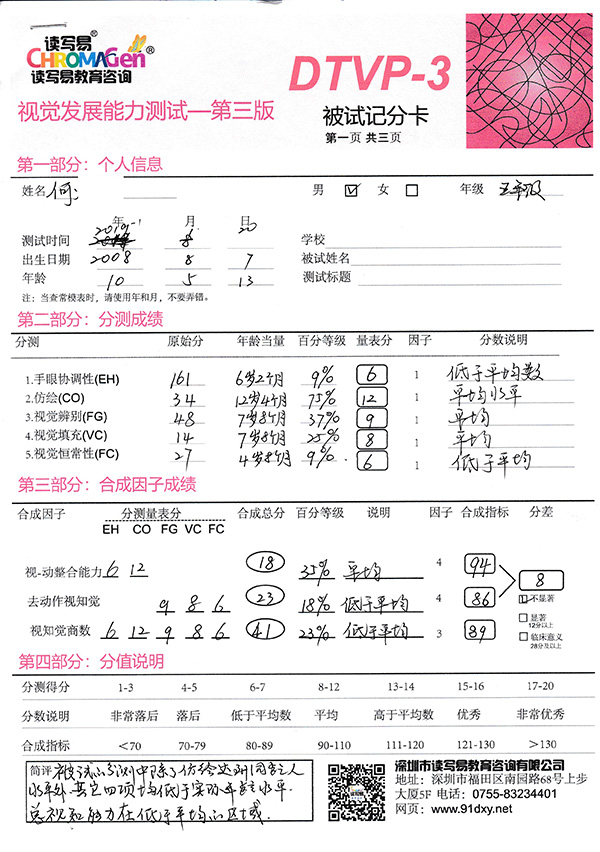 读写易
CHROMAGen®
读写易教育咨询
DTVP-3
视觉发展能力测试—第三版
被试记分卡
第一页 共三页
第一部分：个人信息
姓名 何 男 ☑ 女 □ 年级 五年级
年 月 日
测试时间 2019-1 20
出生日期 2008 8 7
年龄 10 5 13
学校
被试姓名
测试标题
注：当查常模表时，请使用年和月，不要弄错。
第二部分：分测成绩
分测 原始分 年龄当量 百分等级 量表分 因子 分数说明
1.手眼协调性(EH) 161 6岁2个月 9% 6 1 低于平均数
2.仿绘(CO) 34 12岁4个月 75% 12 1 平均水平
3.视觉辨别(FG) 48 7岁8个月 37% 9 1 平均
4.视觉填充(VC) 14 7岁8个月 25% 8 1 平均
5.视觉恒常性(FC) 27 4岁8个月 9% 6 1 低于平均
第三部分：合成因子成绩
合成因子 分测量表分 合成总分 百分等级 说明 因子 合成指标 分差
EH CO FG VC FC
视-动整合能力 6 12 18 35% 平均 4 94
8
去动作视知觉 9 8 6 23 18% 低于平均 4 86
不显著
显著
12分以上
视知觉商数 6 12 9 8 6 41 23% 低于平均 3 89
临床意义
28分及以上
第四部分：分值说明
分测得分 1-3 4-5 6-7 8-12 13-14 15-16 17-20
分数说明 非常落后 落后 低于平均数 平均 高于平均数 优秀 非常优秀
合成指标 <70 70-79 80-89 90-110 111-120 121-130 >130
简评 被试的分测中除了仿绘达到同龄人
水平外，其它四项均低于实际年龄水平.
总视知能力在低于平均的区域.
深圳市读写易教育咨询有限公司
地址：深圳市福田区南园路68号上步
大厦5F 电话：0755-83234401
网页：www.91dxy.net